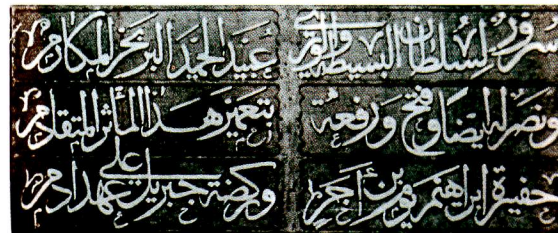 سرور لسلطان البسيطة والورى عبيد الحميد البر بحر المكارم
ونصر له ايضا وفتح ورفعة بتعمير هذا المأثر المتقادم
حفيرة ابراهيم يوم بن آجر وركضة جبريل على عهد ادم